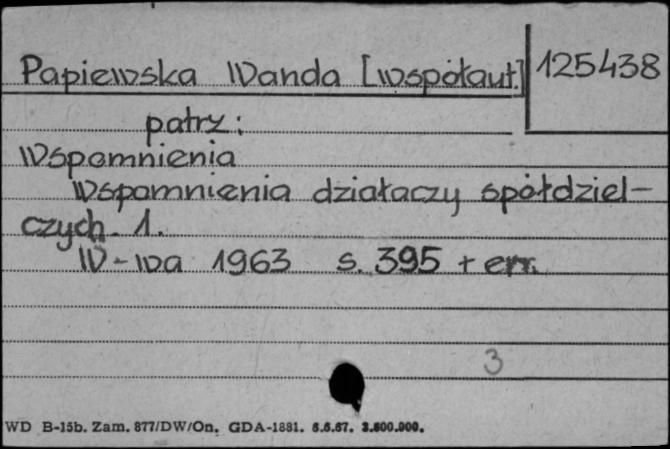 Papiewska Wanda [współaut.] 125438
patrz:
Wspomnienia
Wspomnienia działaczy spółdziel-
czych. 1.
W-wa 1963 s. 395 + err.
3
WD B-15b. Zam. 877/DW/On. GDA-1881. 6.6.67. 3.800.000.